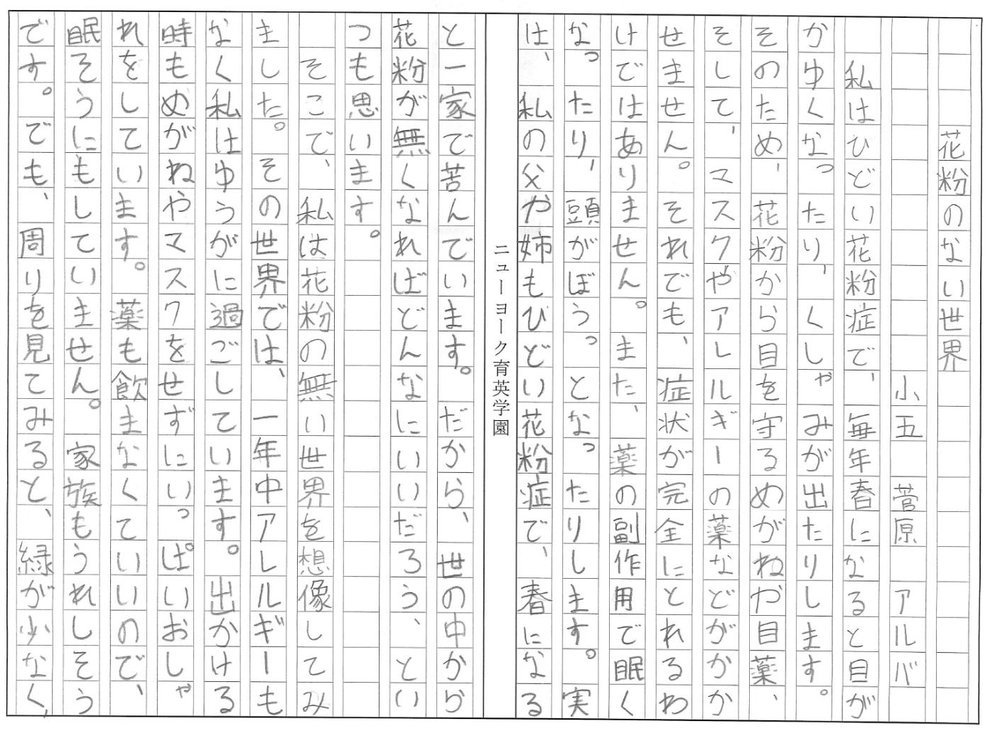 花粉のない世界
小五 菅原 アルバ
私はひどい花粉症で、毎年春になると目が
かゆくなったり、くしゃみが出たりします。
そのため、花粉から目を守るめがねや目薬、
そして、マスクやアレルギーの薬などがかか
せません。それでも、症状が完全にとれるわ
けではありません。また、薬の副作用で眠く
なったり、頭がぼうっとなったりします。実
は、私の父や姉もひどい花粉症で、春になる
ニューヨーク育英学園
と一家で苦んでいます。だから、世の中から
花粉が無くなればどんなにいいだろう、とい
つも思います。
そこで、私は花粉の無い世界を想像してみ
ました。その世界では、一年中アレルギーも
なく私はゆうがに過ごしています。出かける
時もめがねやマスクをせずにいっぱいおしゃ
れをしています。薬も飲まなくていいので、
眠そうにもしていません。家族もうれしそう
です。でも、周りを見てみると、緑が少なく、